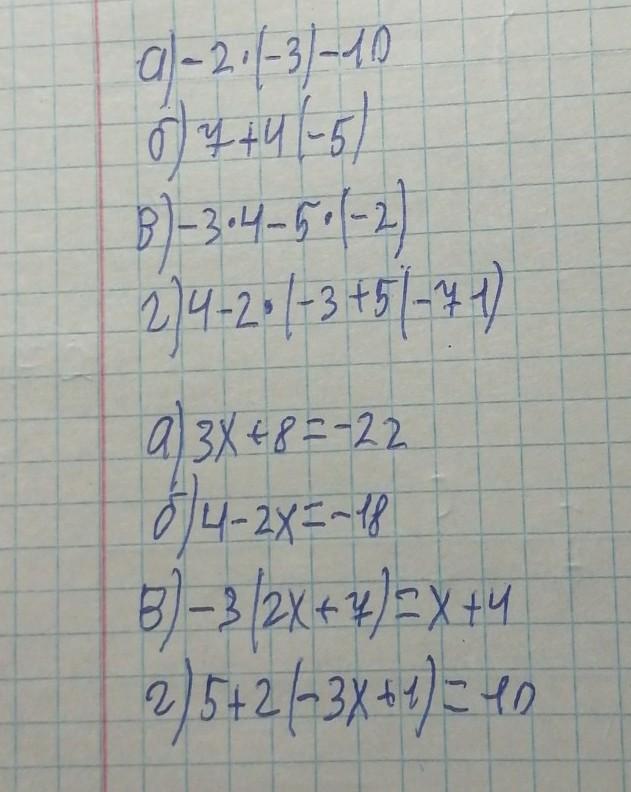 а) -2·(-3)-10
б) 7+4(-5)
в) -3·4-5·(-2)
г) 4-2·(-3+5(-7+1)
а) 3x+8=-22
б) 4-2x=-18
в) -3(2x+7)=x+4
г) 5+2(-3x+1)=-10